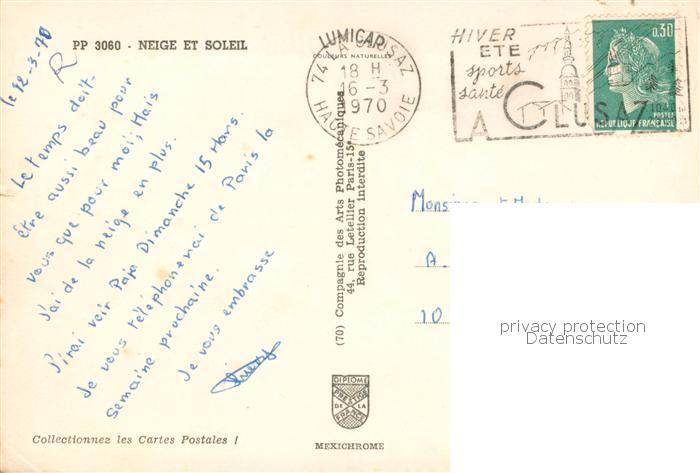 PP 3060 - NEIGE ET SOLEIL
le 12-3-70
Le temps doit-
être aussi beau pour
vous que pour moi, Mais
j'ai de la neige en plus.
J'irai voir Papa Dimanche 15 Mars.
Je vous téléphonerai de Paris la
semaine prochaine.
Je vous embrasse
Collectionnez les Cartes Postales !
LUMICAP
COULEURS NATURELLES
74 LA CLUSAZ
18 H
16-3
1970
HAUTE SAVOIE
(70) Compagnie des Arts Photomécaniques
44, rue Letellier Paris-15e
Reproduction Interdite
DIPLOME
PRESTIGE
DE LA
FRANCE
MEXICHROME
HIVER
ETE
sports
santé
LA CLUSAZ
0,30
POSTES
REPUBLIQUE FRANCAISE
A.
10
privacy protection
Datenschutz